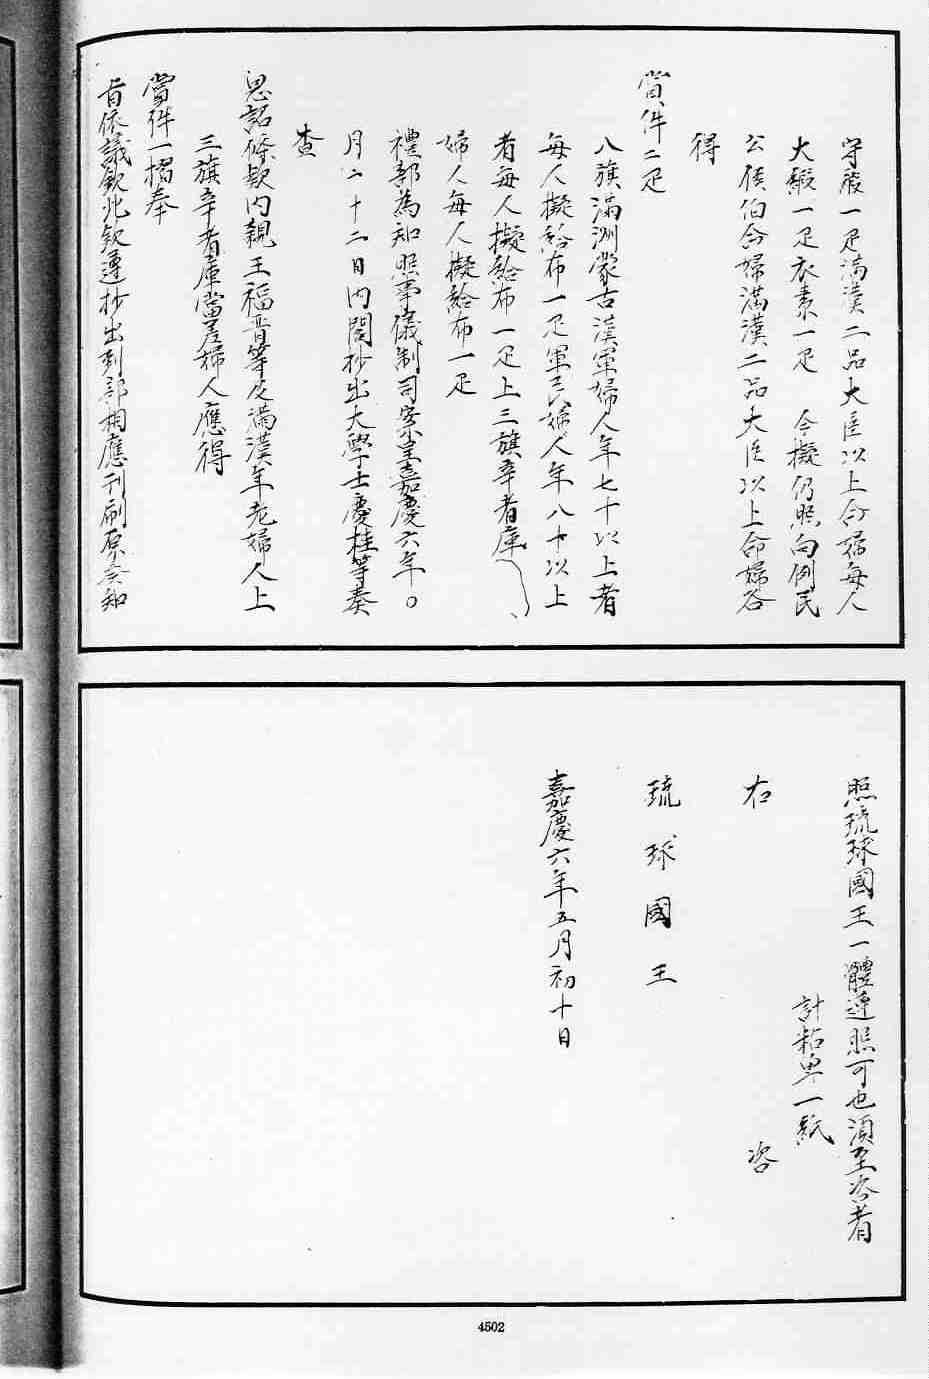 守蔽一疋滿漢二品大臣以上命婦每人
大緞一疋衣素一疋　今擬仍照向例民
公侯伯命婦滿漢二品大臣以上命婦各
得
賞件二疋
八旗滿洲蒙古漢軍婦人年七十以上者
每人擬給布一疋軍民婦人年八十以上
者每人擬給布一疋上三旗辛者庫
婦人每人擬給布一疋
禮部為知照事儀制司案呈嘉慶六年。
月二十二日內閣抄出大學士慶桂等奏
查
恩詔條欵內親王福晋等及滿漢年老婦人上
三旗辛者庫當差婦人應得
賞件一摺奉
旨依議欽此欽遵抄出到部相應刊刷原奏知
照琉球國王一體遵照可也須至咨者
計粘單一紙
右　咨
琉球國王
嘉慶六年五月初十日
4502